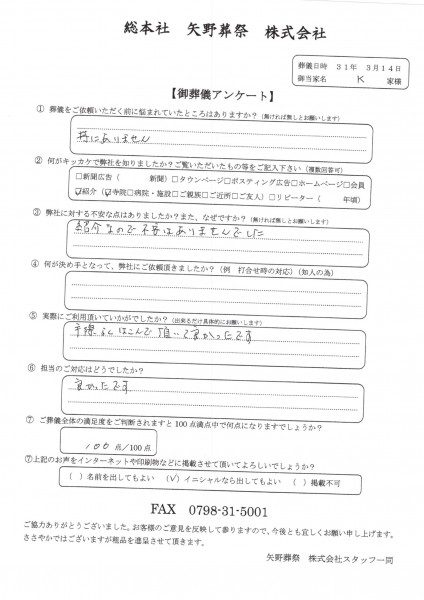 総本社　矢野葬祭　株式会社
葬儀日時　３１年　３月１４日
御当家名　K　家様
【御葬儀アンケート】
① 葬儀をご依頼いただく前に悩まれていたところはありますか？（無ければ無しとお願いします）
特にありません
② 何がキッカケで弊社を知りましたか？ご覧いただいたもの等をご記入下さい（複数回答可）
□新聞広告（　　　新聞）□タウンページ□ポスティング広告□ホームページ□会員
☑紹介（☑寺院□病院・施設□ご親族□ご近所□ご友人）□リピーター（　　年頃）
③ 弊社に対する不安な点はありましたか？また、なぜですか？（無ければ無しとお願いします）
紹介なので不安はありませんでした
④ 何が決め手となって、弊社にご依頼頂きましたか？（例　打合せ時の対応）（知人の為）
⑤ 実際にご利用頂いていかがでしたか？（出来るだけ具体的にお願いします）
手際よくはこんで頂いて良かったです
⑥ 担当のご対応はどうでしたか？
良かったです
⑦ ご葬儀全体の満足度をご判断されますと100点満点中で何点になりますでしょうか？
100 点/100点
⑦上記のお声をインターネットや印刷物などに掲載させて頂いてよろしいでしょうか？
（　）名前を出してもよい　（✓）イニシャルなら出してもよい　（　）掲載不可
FAX　0798-31-5001
ご協力ありがとうございました。お客様のご意見を反映して参りますので、今後とも宜しくお願い申し上げます。
ささやかではございますが粗品を進呈させて頂きます。
矢野葬祭　株式会社スタッフ一同